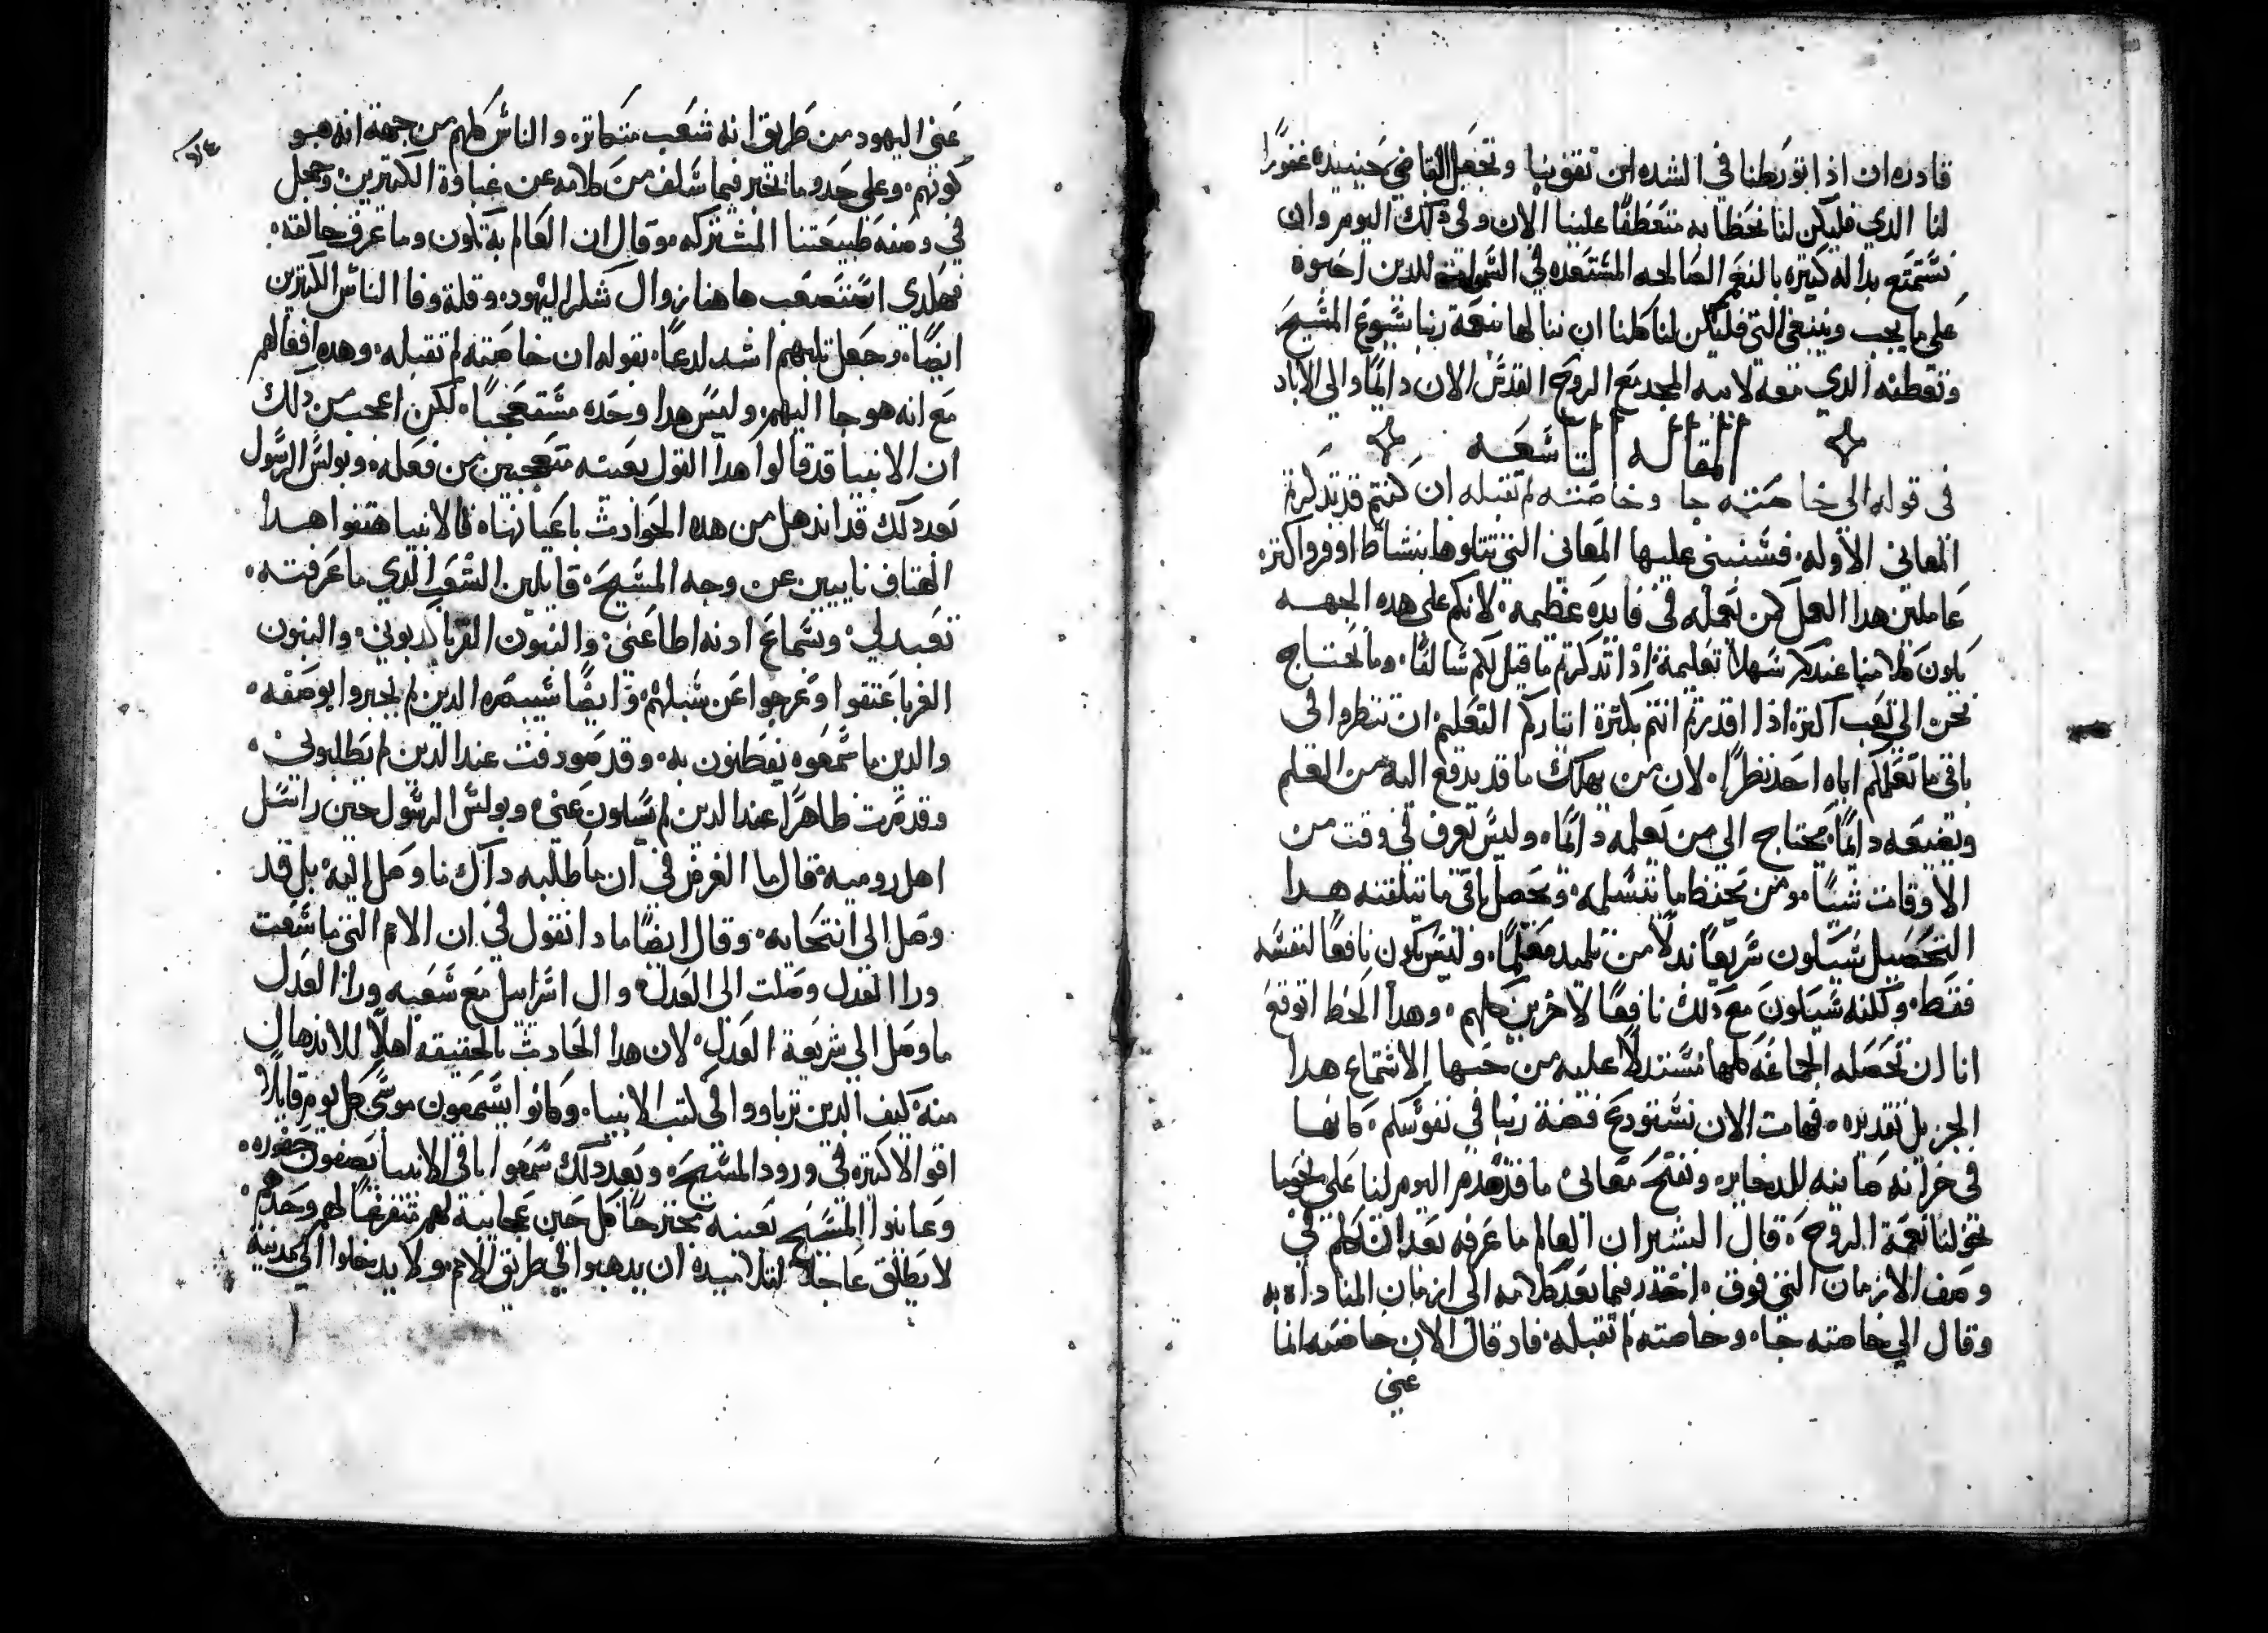 قادره ان اذا تورطنا في الشده ان تقوينا وتجعل القاضي حينيدٍ غفورًا
لنا الدي فليكن لنا نحظا به متعطفًا علينا الان وفي ذلك اليوم وان
نستمتع بداله كتيره بالنعم الصالحه المستعده في السموات للدين احبوه
على ما يجب وينبغي التي فليكن لنا كلنا ان ننالها بنعمة ربنا يسوع المسيح
وتعطفه الدي معه لابيه المجد مع الروح القدس الان دايمًا والي الاباد
المقاله التاسعه
في قوله الى خاصته جا وخاصته لم تقبله ان كنتم قد تدكرتم
المعاني الاوله فسنبني عليها المعاني التي نتلوها بنشاط اوفر واكتر
عاملين هدا العمل كمن يعمله في فايده عظيمه لانكم على هده الجهه
يكون كلامنا عندكم سهلا تعليمه ادا تدكرتم ما قيل لكم سالفًا وما نحتاج
نحن الى تعب اكتر اذا اقدرتم انتم بكترة ايتاركم التعليم ان تنظروا في
باقي ما نعلمكم اياه احد نظرًا لان من يهلك ما قد يدفع اليه من العلم
ويضيعه دايمًا يحتاج الى من يعلمه دايمًا وليس يعرف في وقت من
الاوقات شيًا ومن يحفظ ما يتسلمه ويحصل باقي ما يتلقنه هدا
التحصيل سيكون سريعًا بدلًا من تلميد معلمًا وليس يكون نافعًا لنفسه
فقط ولكنه سيكون مع دلك نافعًا لاخرين كلهم وهدا الحظ اتوقع
انا ان تحصله الجماعه كلها مستدلًا عليه من حسها الاستماع هدا
الجزيل تقديره فهات الان نستودع فضة ربنا في نفوسكم كانها
في خزانه صاينه للدخاير ونفتح معاني ما قد قدم اليوم لنا على نحو ما
تخولنا نعمة الروح قال البشير ان العالم ما عرفه بعد ان كلم في
وصف الازمان التي فوق انحدر فيما بعد كلامه الى ازمان المناداه به
وقال الى خاصته جا وخاصته لم تقبله فاد قال الان خاصته انما
عني
عني اليهود من طريق انه شعب متكاتر والناس كلهم من جهة انه هو
كونهم وعلى حدو ما تحير فيما سلف من كلامه عن غباوة الكتيرين وخجل
في وصفه طبيعتنا المشتركه وقال ان العالم به تكون وما عرف خالقه
فهكدي استصعب هاهنا زوال شكر اليهود وقلة وفا الناس الكتيرين
ايضًا وجعل تلبهم اشد لدعًا بقوله ان خاصته لم تقبله وهده افعالهم
مع انه هو جا اليهم وليس هدا وحده مستعجبًا لكن اعجب من دلك
ان الانبيا قد قالوا هدا القول بعينه متعجبين من فعله وبولس الرسول
بعد دلك قد اندهل من هده الحوادث باعيانها فالانبيا هتفوا هدا
الهتاف نايبين عن وجه المسيح قايلين الشعب الدي ما عرفته
تعبد لي وبسماع ادنه اطاعني والبنون الغربا كدبوني والبنون
الغربا عتقوا وعرجوا عن سبلهم وايضًا سيبصره الدين لم يخبروا بوصفه
والدين ما سمعوه يفطنون به وقد صودفت عند الدين لم يطلبوني
وقد صرت ظاهرًا عند الدين لم يسلون عني وبولس الرسول حين راسل
اهل روميه قال ما الغرض في ان ما طلبه داك نا وصل اليه بل قد
وصل الى انتحابه وقال ايضًا مادا نقول في ان الامم التي ما سعت
ورا العدل وصلت الى العدل وال اسراييل مع سعيه ورا العدل
ما وصل الى شريعة العدل لان هدا الحادث بالحقيقه اهلًا للاندهال
منه كيف الدين تربوا في كتب الانبيا وكانوا يسمعون موسى كل يوم قايلًا
اقوالا كتيره في ورود المسيح وبعد دلك سمعوا باقي الانبيا يصفون حضوره
وعاينوا المسيح بعينه مجترحًا كل حين عجايبه لهم متفرغًا لهم وحدهم
لا يطلق عاجلًا لتلاميده ان يدهبوا في طريق الامم ولا يدخلوا الى مدينة